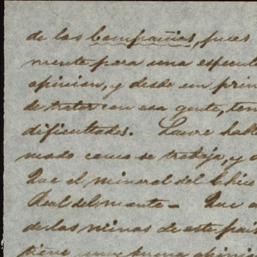 de las Compañias, pues
mente para una especula
opinion, y desde un prin
de tratar con esa gente, ten
dificultades. 
mado como se trabaja, y
Que el mineral del Chico
Real del monte - Que
de las minas de este país
tiene muy buena opinion